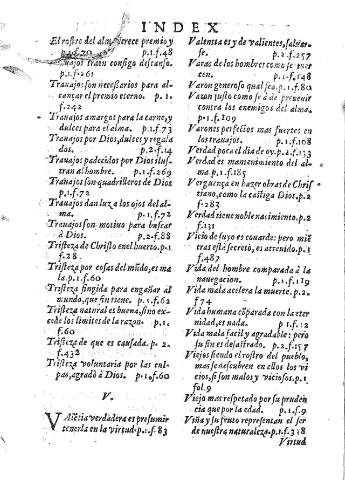 INDEX
El rostro del alma merece premio y
p.1.f.48
Trauajos traen consigo descanso.
p.1.f.261
Trauajos son necessarios para al-
cançar el premio eterno. p.1.
f.242
Trauajos amargos para la carne, y
dulces para el alma. p.1.f.73
Trauajos por Dios, dulces y regala
dos. p.2.f.14
Trauajos padecidos por Dios ilus-
tran al hombre. p.1.f.269
Trauajos son quadrilleros de Dios
p.1.f.72
Trauajos dan luz a los ojos del al-
ma. p.1.f.72
Trauajos son motiuo para buscar
à Dios. p.2.f.88
Tristeza de Christo en el huerto. p.1
f.28.
Tristeza por cosas del mũdo, es ma
la. p.1.f.60
Tristeza fingida para engañar al
mundo, que fin tiene. p.1.f.62
Tristeza natural es buena, sino ex-
cede los limites de la razon. p.1.
f.60
Tristeza de que es causada. p.2.
f.432
Tristeza voluntaria por las cul-
pas, agradò à Dios. p.1.f.60
V.
Valẽtia verdadera es presumir
tenerla en la virtud. p.1.f.83
Valentia es y de valientes,
se. p.2.f.257
Varas de los hombres como se tuer
cen. p.1.f.148
Varon generoso qual sea. p.1.f.80
Varon justo como se à de preuenir
contra los enemigos del alma.
p.1.f.109
Varones perfectos mas fuertes en
los trauajos. p.1.f.108
Verdad para el dia de oy. p.2.f.133
Verdad es mantenimiento del al-
ma. p.1.f.185
Verguença en hazer obras de Chris
tiano, como la castiga Dios. p.2
f.283
Verdad tiene noble nacimiento. p.2
f.131
Vicio de suyo es couarde: pero mie
tras està secreto, es atreuido. p.1
f.487
Vida del hombre comparada à la
nauegacion. p.1.f.119
Vida mala acelera la muerte. p.2.
f.74
Vida humana cõparada con la eter
nidad, es nada. p.1.f.12
Vida mala facil y agradable: pero
su fin es desastrado. p.2.f.157
Viejos siendo el rostro del pueblo,
mas se descubren en ellos los vi
cios, si son malos y viciosos. p.1
fol.9
Viejo mas respetado por su pruden
cia que por la edad. p.1.f.9
Viña y su fruto representan el ser
de nuestra naturaleza. p.1.f.338
Virtud